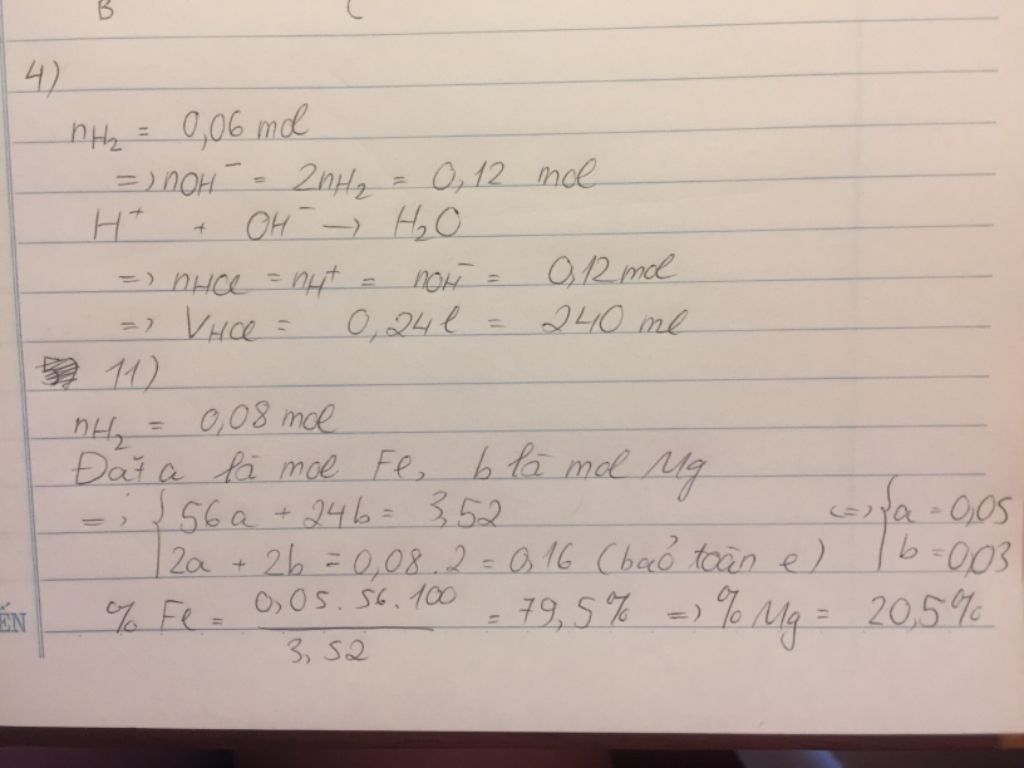 B C
4)
nH₂ = 0,06 mol
=> nOH⁻ = 2nH₂ = 0,12 mol
H⁺ + OH⁻ → H₂O
=> nHCl = nH⁺ = nOH⁻ = 0,12 mol
=> VHCl = 0,24l = 240 ml
11)
nH₂ = 0,08 mol
Đặt a là mol Fe, b là mol Mg
=> { 56a + 24b = 3,52 <=> { a = 0,05
2a + 2b = 0,08.2 = 0,16 (bảo toàn e) b = 0,03
% Fe = 0,05.56.100 / 3,52 = 79,5% => % Mg = 20,5%
ẾN